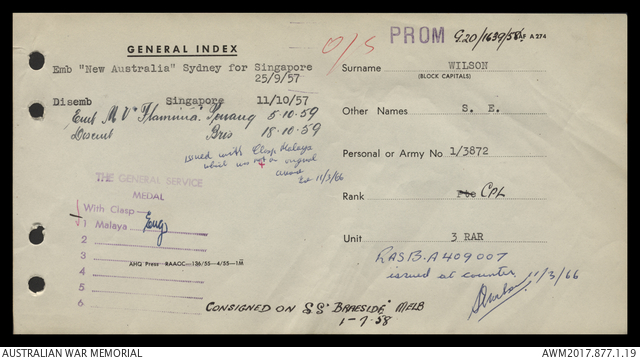 GENERAL INDEX
O/S
PROM G20/1639/58 A 274
Emb "New Australia" Sydney for Singapore
25/9/57
Surname WILSON
(BLOCK CAPITALS)
Disemb Singapore 11/10/57
Emb M V "Flaminia" Penang 5.10.59
Disemb Bris 18.10.59
Other Names S. E.
issued with Clasp Malaya
which was not on original
11/3/66
Personal or Army No 1/3872
THE GENERAL SERVICE
MEDAL
With Clasp
1 Malaya
2
3
4
5
6
Rank Pte CPL
Unit 3 RAR
AHQ Press RAAOC—136/55—4/55—1M
RASB. A 409007
issued at counter 11/3/66
CONSIGNED ON SS "BRAESIDE" MELB
1-7-58
AUSTRALIAN WAR MEMORIAL
AWM2017.877.1.19